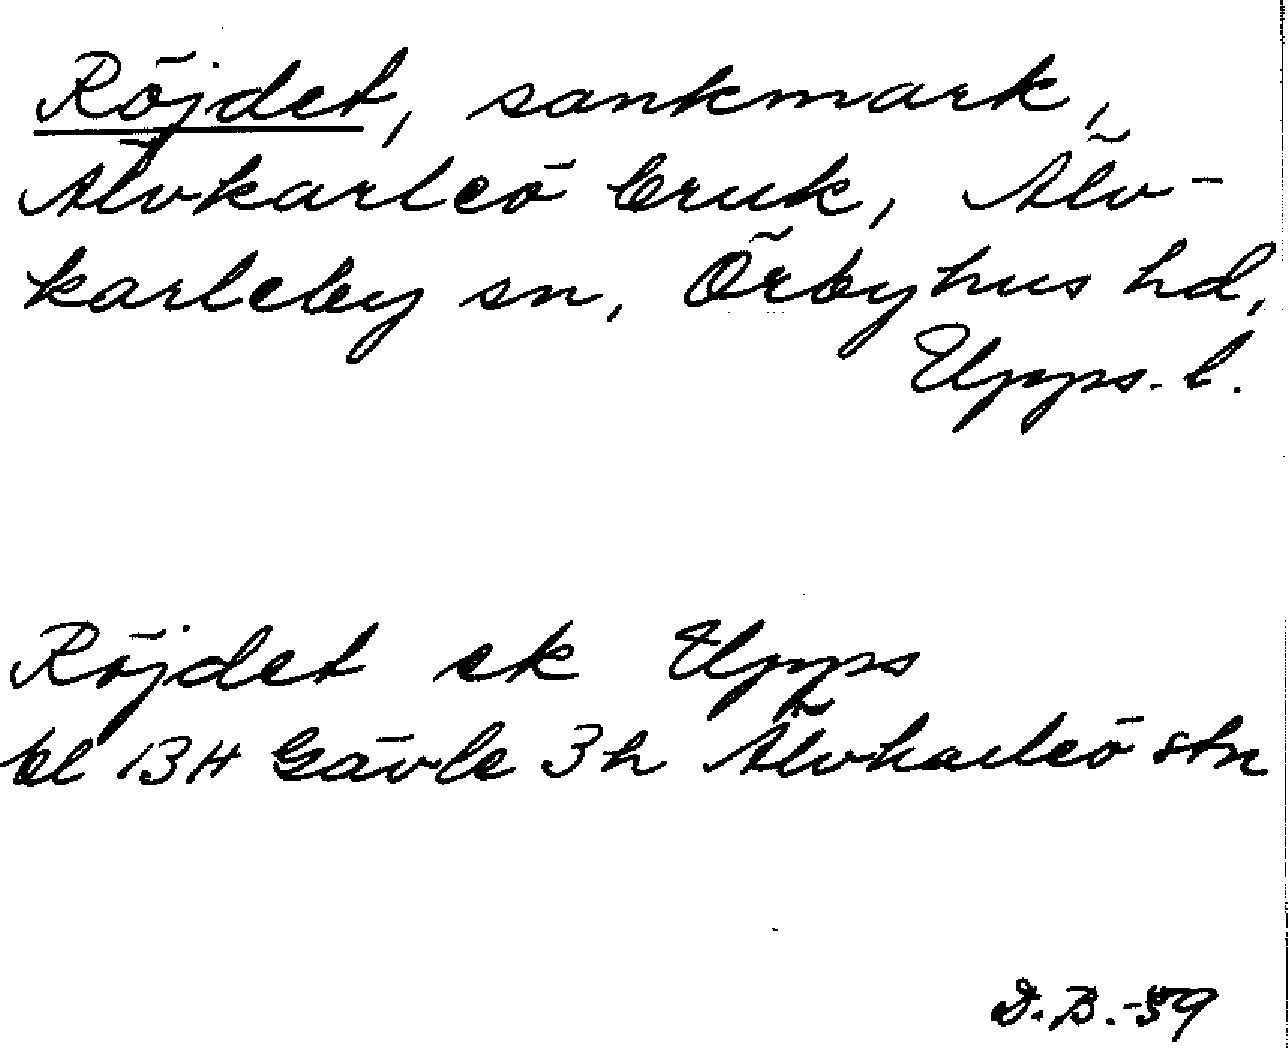 Röjdet, sankmark,
Älvkarleö bruk, Älv-
karleby sn, Örbyhus hd,
Upps. l.
Röjdet ek Upps
bl 13H Gävle 3h Älvkarleö stn
D.B.-59